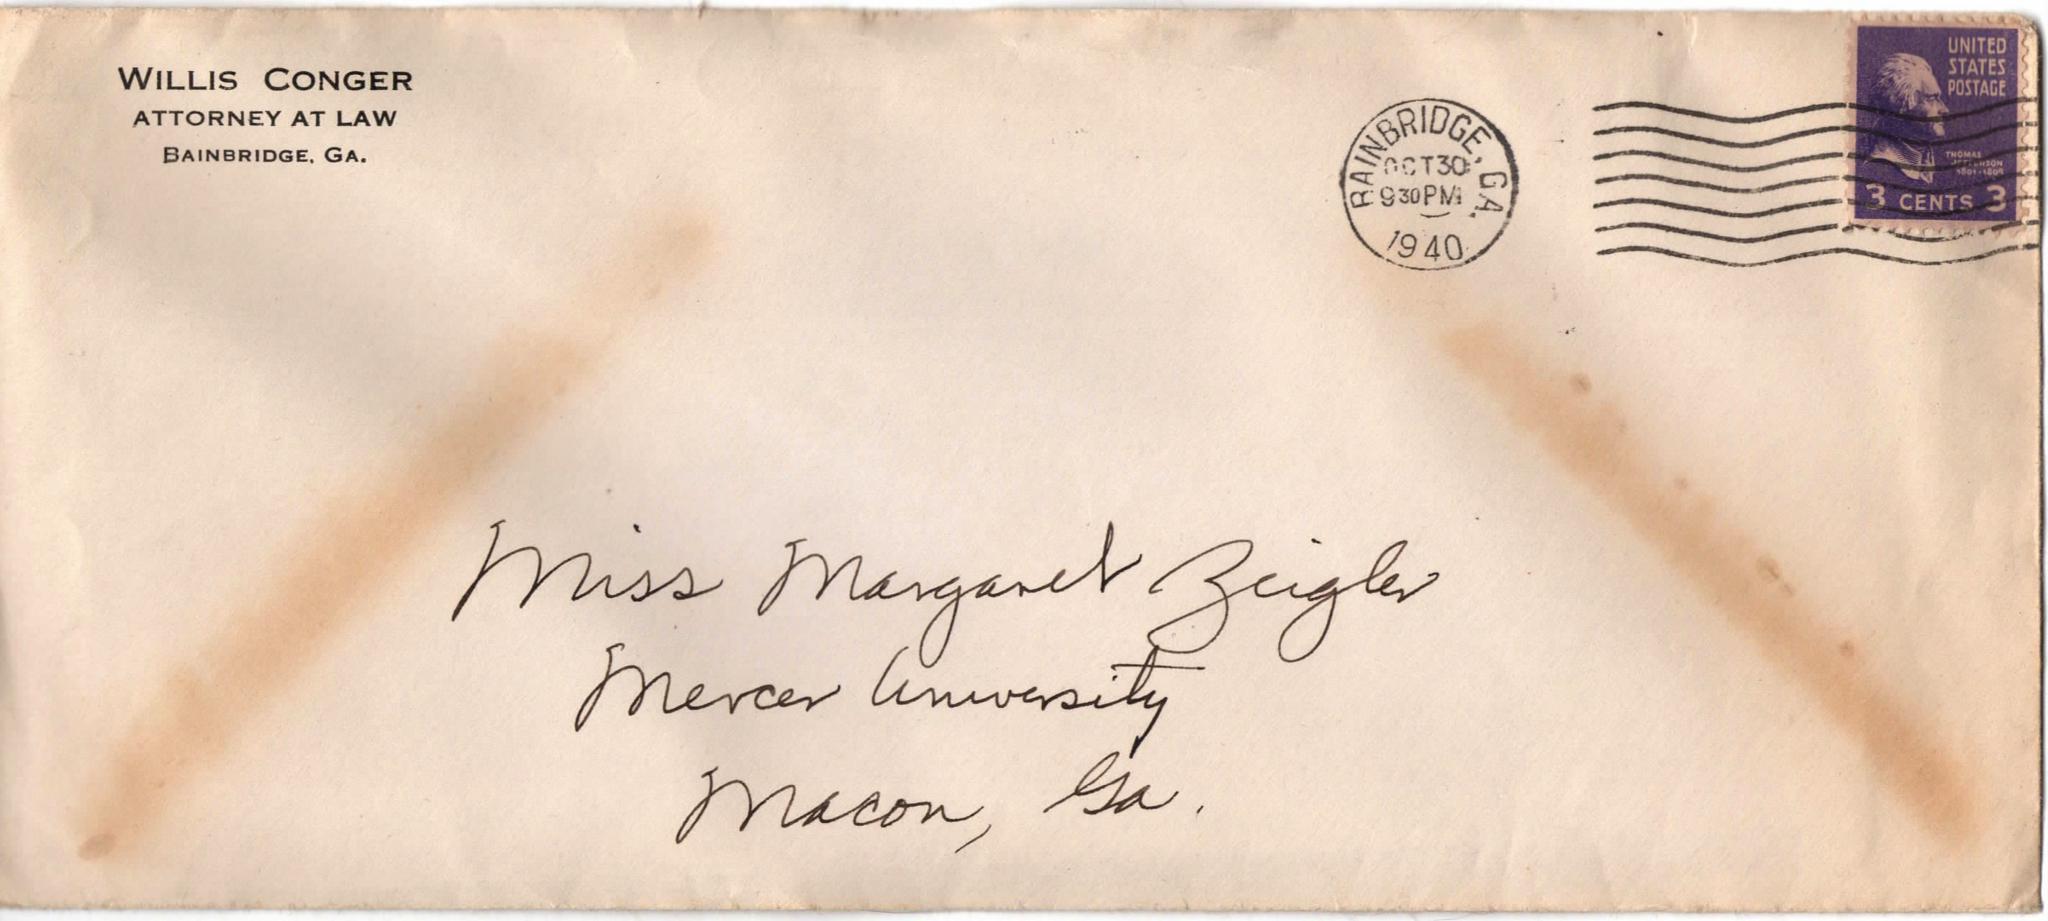 WILLIS CONGER
ATTORNEY AT LAW
BAINBRIDGE, GA.
BAINBRIDGE, GA.
OCT 30
9 30 PM
1940
UNITED
STATES
POSTAGE
THOMAS
JEFFERSON
1801-1809
3 CENTS 3
Miss Margaret Zeigler
Mercer University
Macon, Ga.